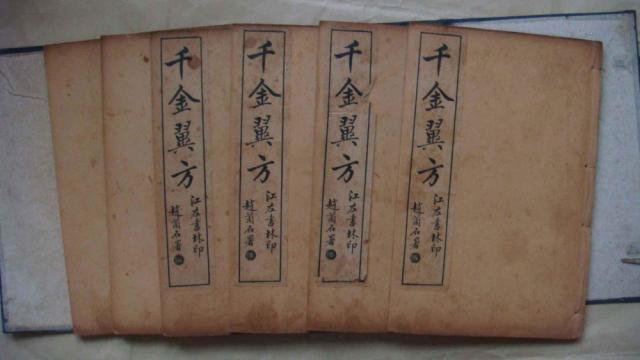 千金翼方
江左書林印
趙蘭石署
千金翼方
江左書林印
趙蘭石署
千金翼方
江左書林印
趙蘭石署
千金翼方
江左書林印
趙蘭石署